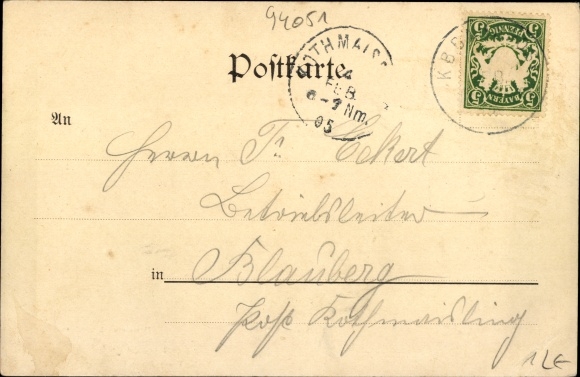 94051
Postkarte
OTHMAISS
4
FEB.
6-7 Nm.
05
KBB
PFENNIG
5 5
BAYERN
5 5
An
Herrn Fr. Eckert
Betriebsleiter
in Blauberg
Post Rothmaisling
12E